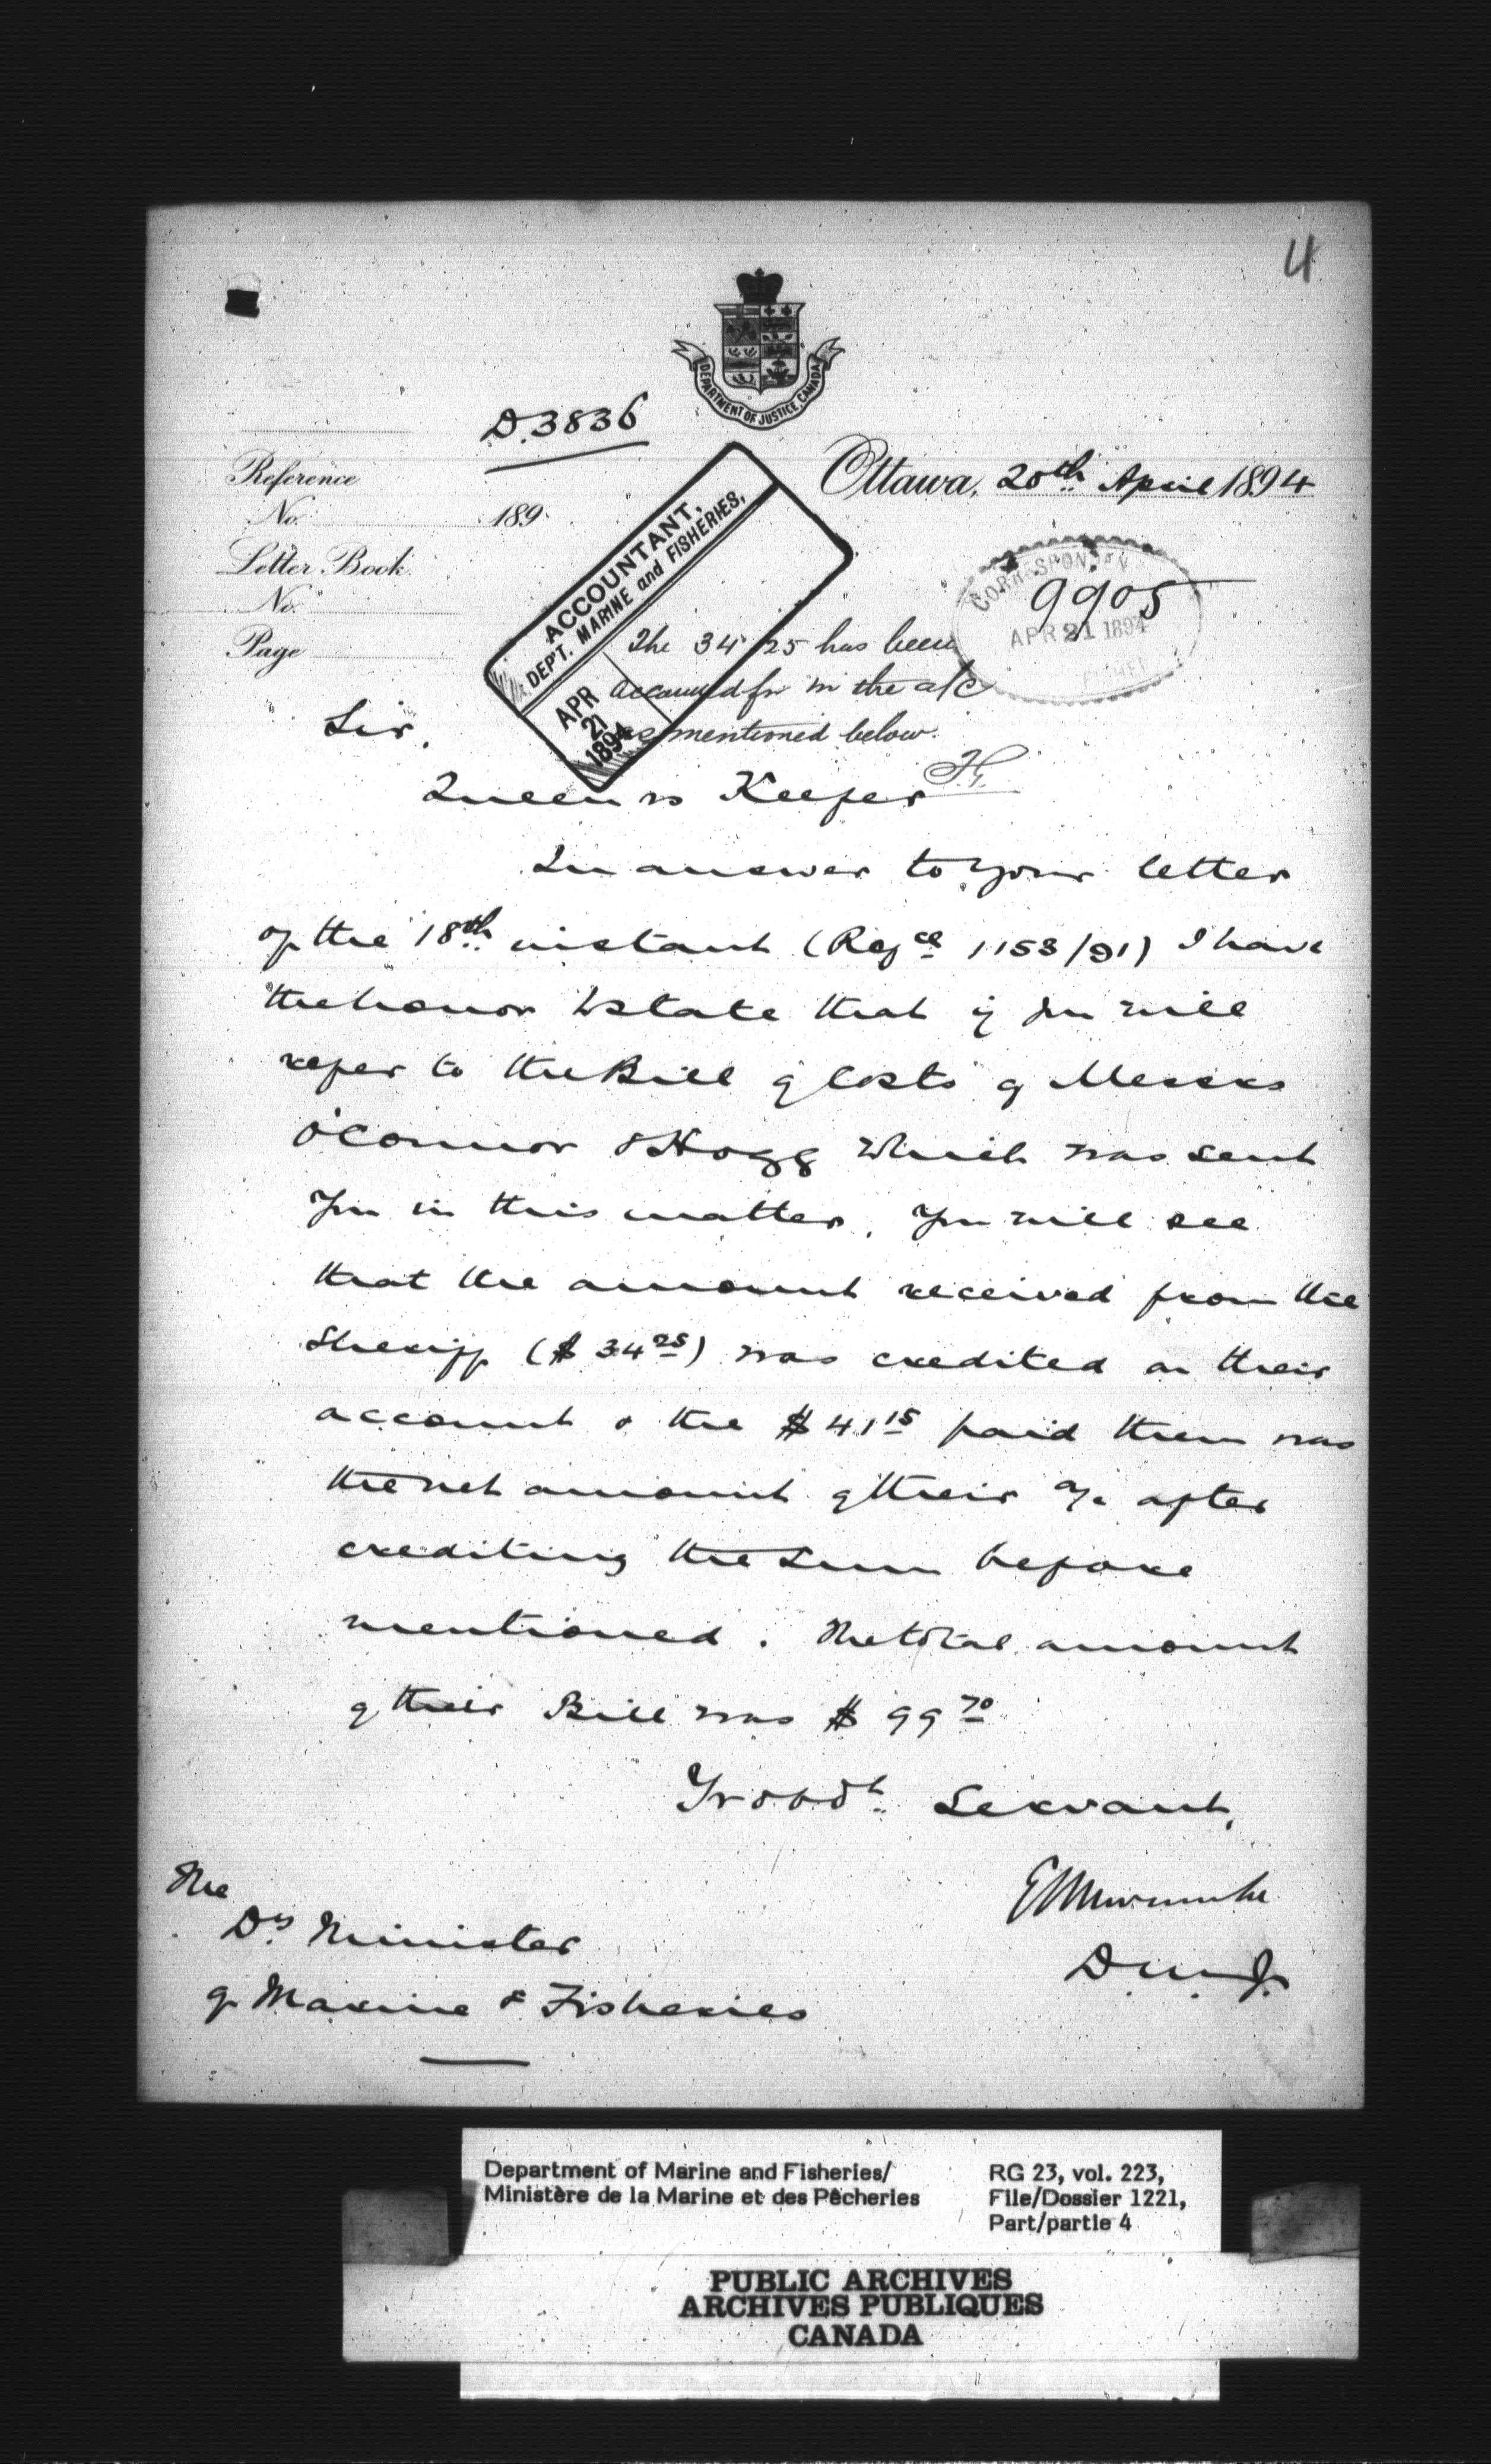 4
DEPARTMENT OF JUSTICE, CANADA
D.3836
Ottawa, 20th April 1894
Reference
No. 189
Letter Book
No.
Page
ACCOUNTANT,
DEP'T. MARINE and FISHERIES,
APR
21
1894
CORRESPONDEN
9905
APR 21 1894
FISHE
The 34.25 has been
accounted for in the a/c
as mentioned below.
H.
Sir,
Queen vs Keefer
In answer to your letter
of the 18th instant (Refce 1153/91) I have
the honor to state that if you will
refer to the Bill of Costs of Messrs
O'Connor & Hogg which was sent
you in this matter, you will see
that the amount received from the
Sheriff ($34 25) was credited on their
account & the $41 15 paid them was
the net amount of their a/c after
crediting the sum before
mentioned. The total amount
of their Bill was $99 70
Yr obdt Servant,
D.M.J.
The
Dy Minister
of Marine & Fisheries
Department of Marine and Fisheries/
Ministère de la Marine et des Pêcheries
RG 23, vol. 223,
File/Dossier 1221,
Part/partie 4
PUBLIC ARCHIVES
ARCHIVES PUBLIQUES
CANADA